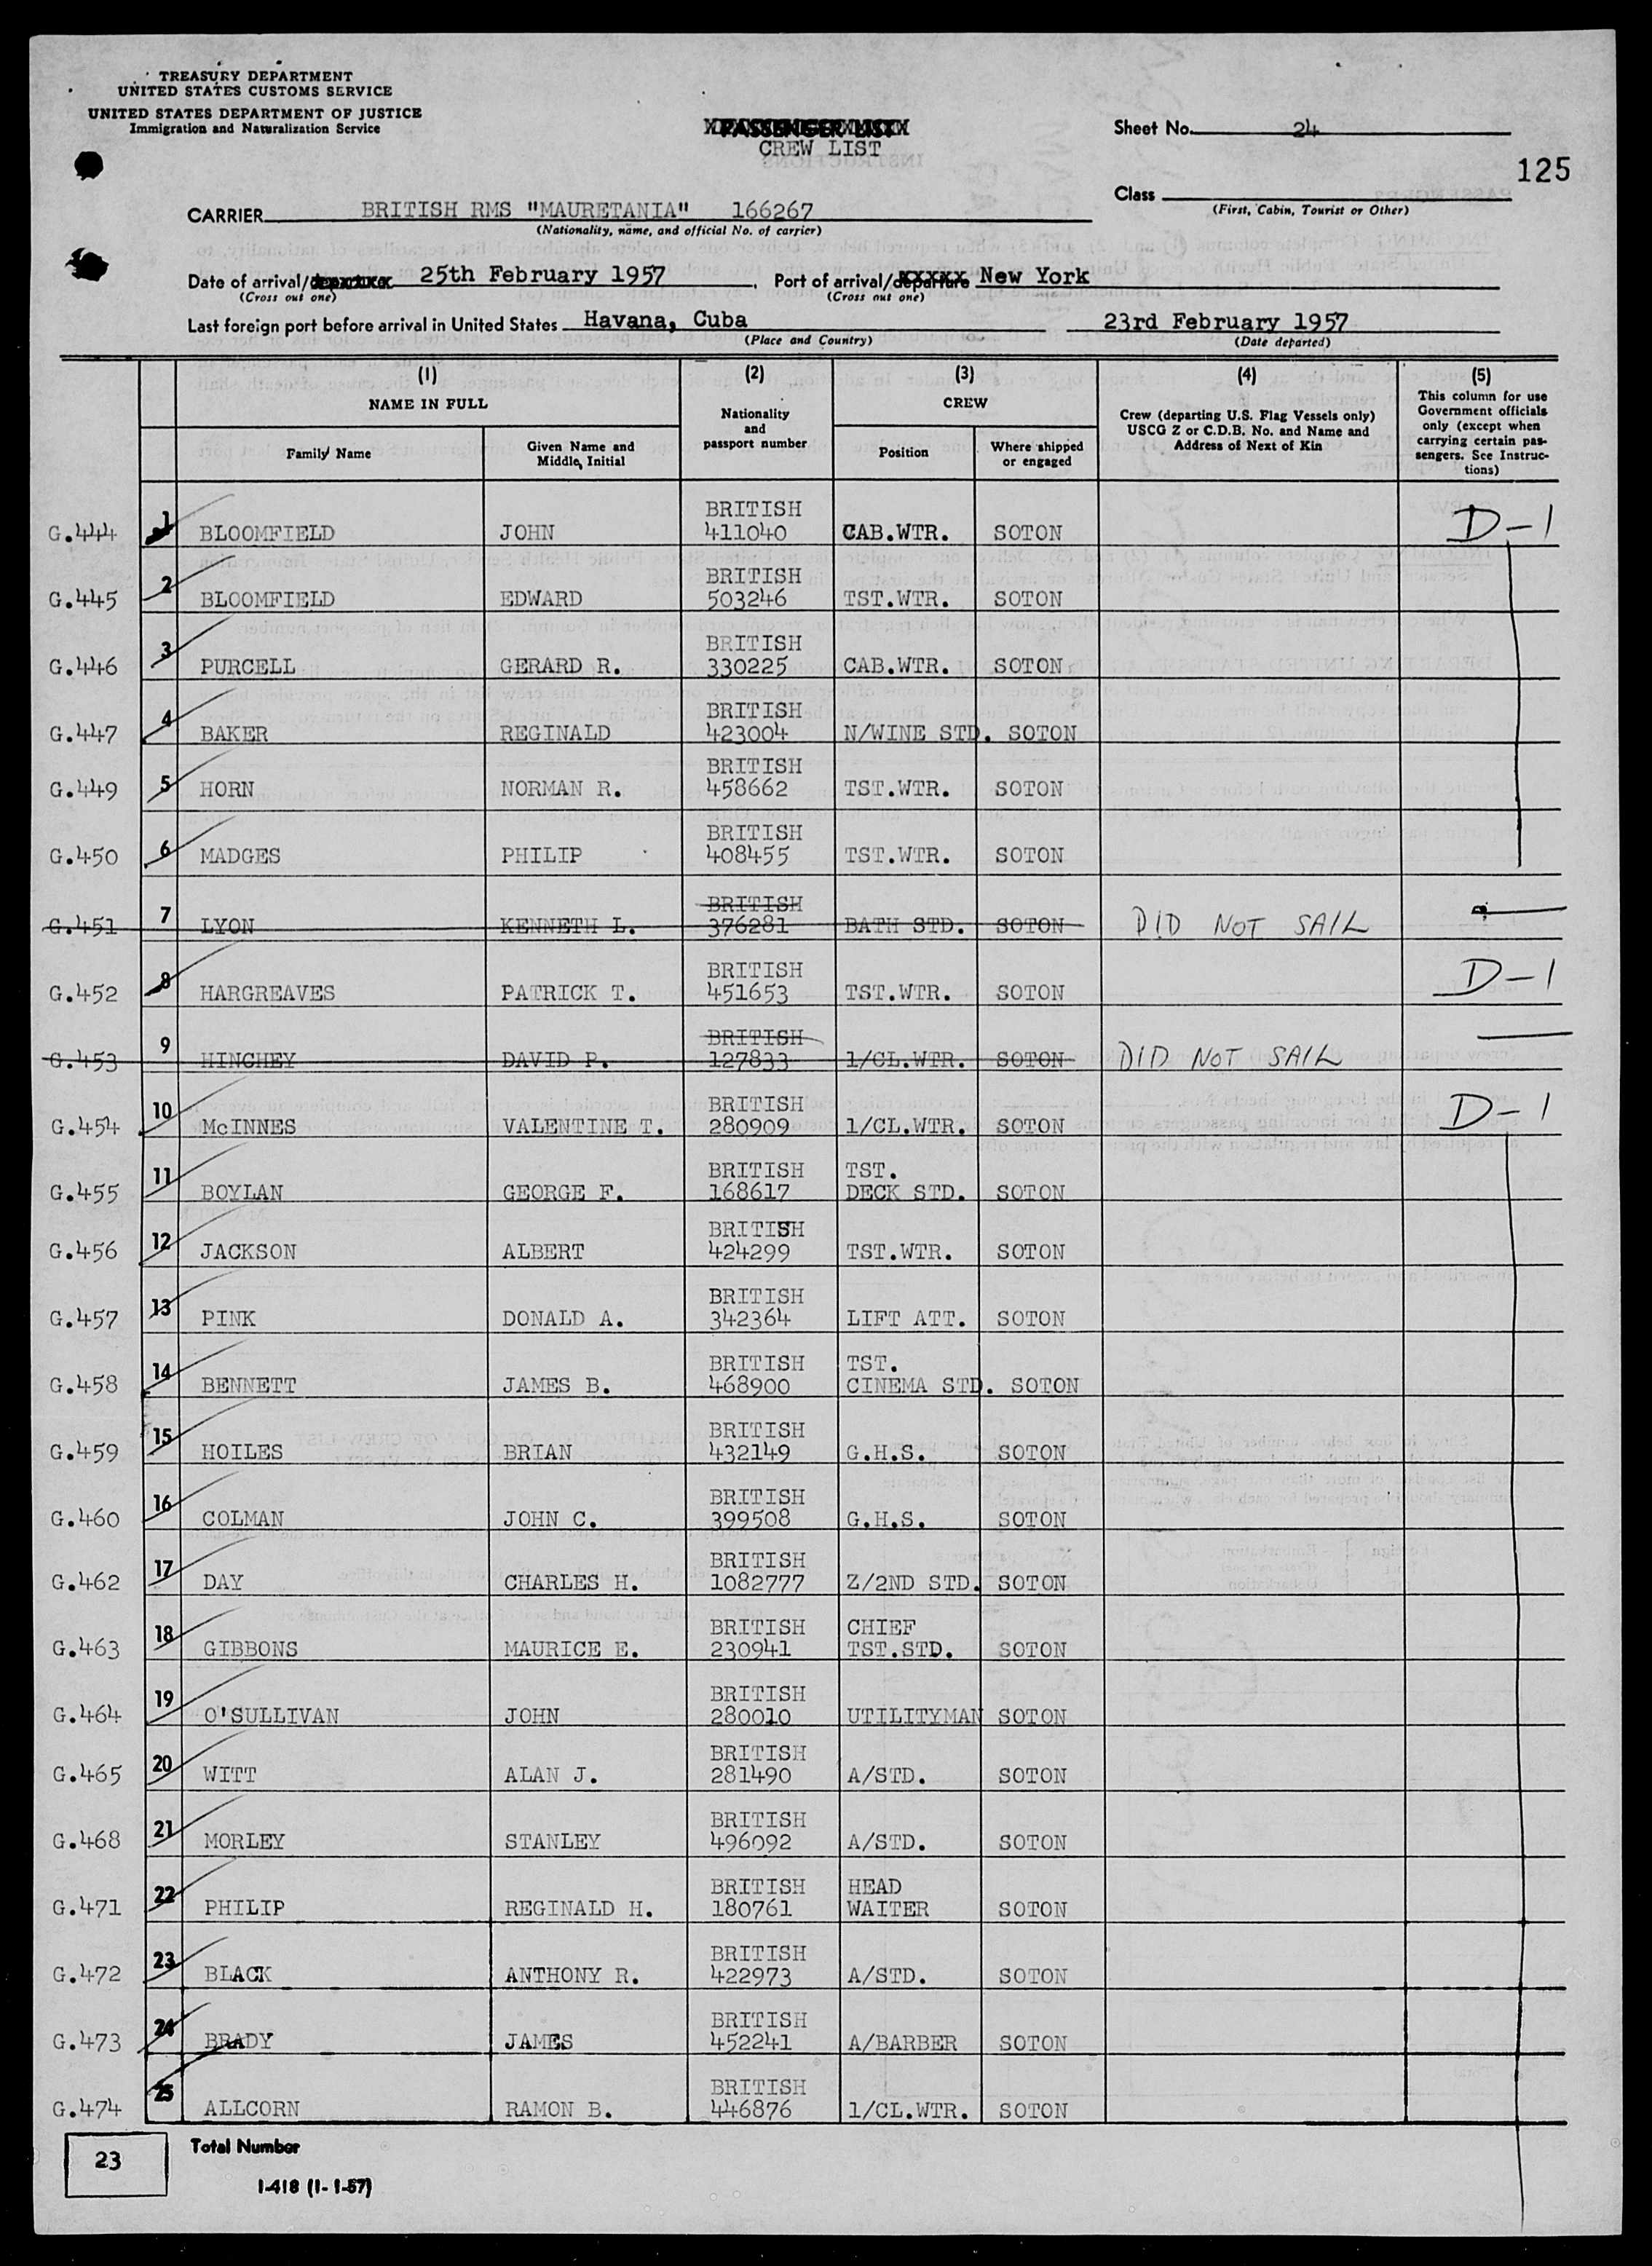 TREASURY DEPARTMENT
UNITED STATES CUSTOMS SERVICE
UNITED STATES DEPARTMENT OF JUSTICE
Immigration and Naturalization Service
PASSENGER LIST
CREW LIST
Sheet No. 24
125
Class
(First, Cabin, Tourist or Other)
CARRIER BRITISH RMS "MAURETANIA" 166267
(Nationality, name, and official No. of carrier)
Date of arrival/departure 25th February 1957, Port of arrival/departure New York
(Cross out one) (Cross out one)
Last foreign port before arrival in United States Havana, Cuba 23rd February 1957
(Place and Country) (Date departed)
(1) (2) (3) (4) (5)
NAME IN FULL
Family Name
Given Name and
Middle Initial
Nationality
and
passport number
CREW
Position
Where shipped
or engaged
Crew (departing U.S. Flag Vessels only)
USCG Z or C.D.B. No. and Name and
Address of Next of Kin
This column for use
Government officials
only (except when
carrying certain pas-
sengers. See Instruc-
tions)
1 BRITISH
G.444 BLOOMFIELD JOHN 411040 CAB.WTR. SOTON D-1
2 BRITISH
G.445 BLOOMFIELD EDWARD 503246 TST.WTR. SOTON
3 BRITISH
G.446 PURCELL GERARD R. 330225 CAB.WTR. SOTON
4 BRITISH
G.447 BAKER REGINALD 423004 N/WINE STD. SOTON
5 BRITISH
G.449 HORN NORMAN R. 458662 TST.WTR. SOTON
6 BRITISH
G.450 MADGES PHILIP 408455 TST.WTR. SOTON
7 BRITISH
G.451 LYON KENNETH L. 376281 BATH STD. SOTON DID NOT SAIL
8 BRITISH
G.452 HARGREAVES PATRICK T. 451653 TST.WTR. SOTON D-1
9 BRITISH
G.453 HINCHEY DAVID P. 127833 1/CL.WTR. SOTON DID NOT SAIL
10 BRITISH
G.454 McINNES VALENTINE T. 280909 1/CL.WTR. SOTON D-1
11 BRITISH TST.
G.455 BOYLAN GEORGE F. 168617 DECK STD. SOTON
12 BRITISH
G.456 JACKSON ALBERT 424299 TST.WTR. SOTON
13 BRITISH
G.457 PINK DONALD A. 342364 LIFT ATT. SOTON
14 BRITISH TST.
G.458 BENNETT JAMES B. 468900 CINEMA STD. SOTON
15 BRITISH
G.459 HOILES BRIAN 432149 G.H.S. SOTON
16 BRITISH
G.460 COLMAN JOHN C. 399508 G.H.S. SOTON
17 BRITISH
G.462 DAY CHARLES H. 1082777 Z/2ND STD. SOTON
18 BRITISH CHIEF
G.463 GIBBONS MAURICE E. 230941 TST.STD. SOTON
19 BRITISH
G.464 O'SULLIVAN JOHN 280010 UTILITYMAN SOTON
20 BRITISH
G.465 WITT ALAN J. 281490 A/STD. SOTON
21 BRITISH
G.468 MORLEY STANLEY 496092 A/STD. SOTON
22 BRITISH HEAD
G.471 PHILIP REGINALD H. 180761 WAITER SOTON
23 BRITISH
G.472 BLACK ANTHONY R. 422973 A/STD. SOTON
24 BRITISH
G.473 BRADY JAMES 452241 A/BARBER SOTON
25 BRITISH
G.474 ALLCORN RAMON B. 446876 1/CL.WTR. SOTON
23 Total Number
I-418 (1-1-57)